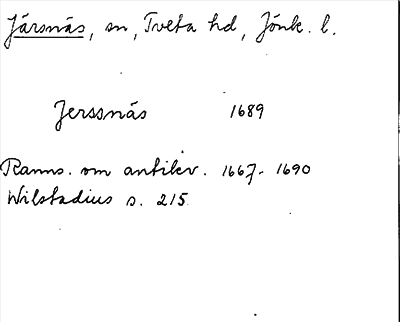 Järsnäs, sn, Tveta hd, Jönk. l.
Jerssnäs 1689
Ranns. om antikv. 1667-1690
Wilstadius s. 215